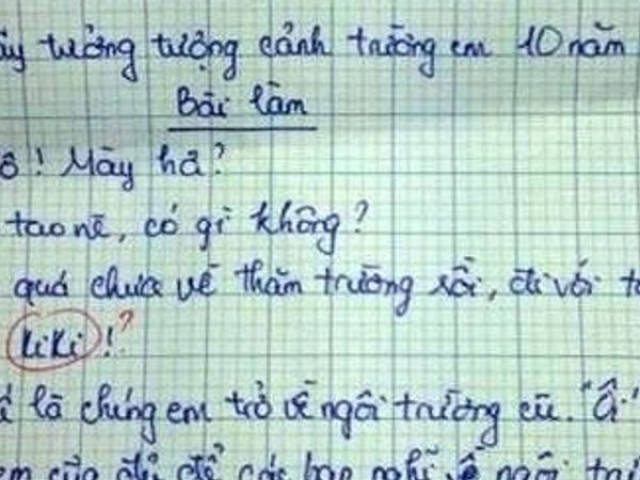 ãy tưởng tượng cảnh trường em 10 năm
Bài làm
ô! Mày hả?
tao nè, có gì không?
quá chưa về thăm trường rồi, đi với
kiki!?
là chúng em trở về ngôi trường cũ. "Ô"
em của để các bạn nghĩ về ngôi